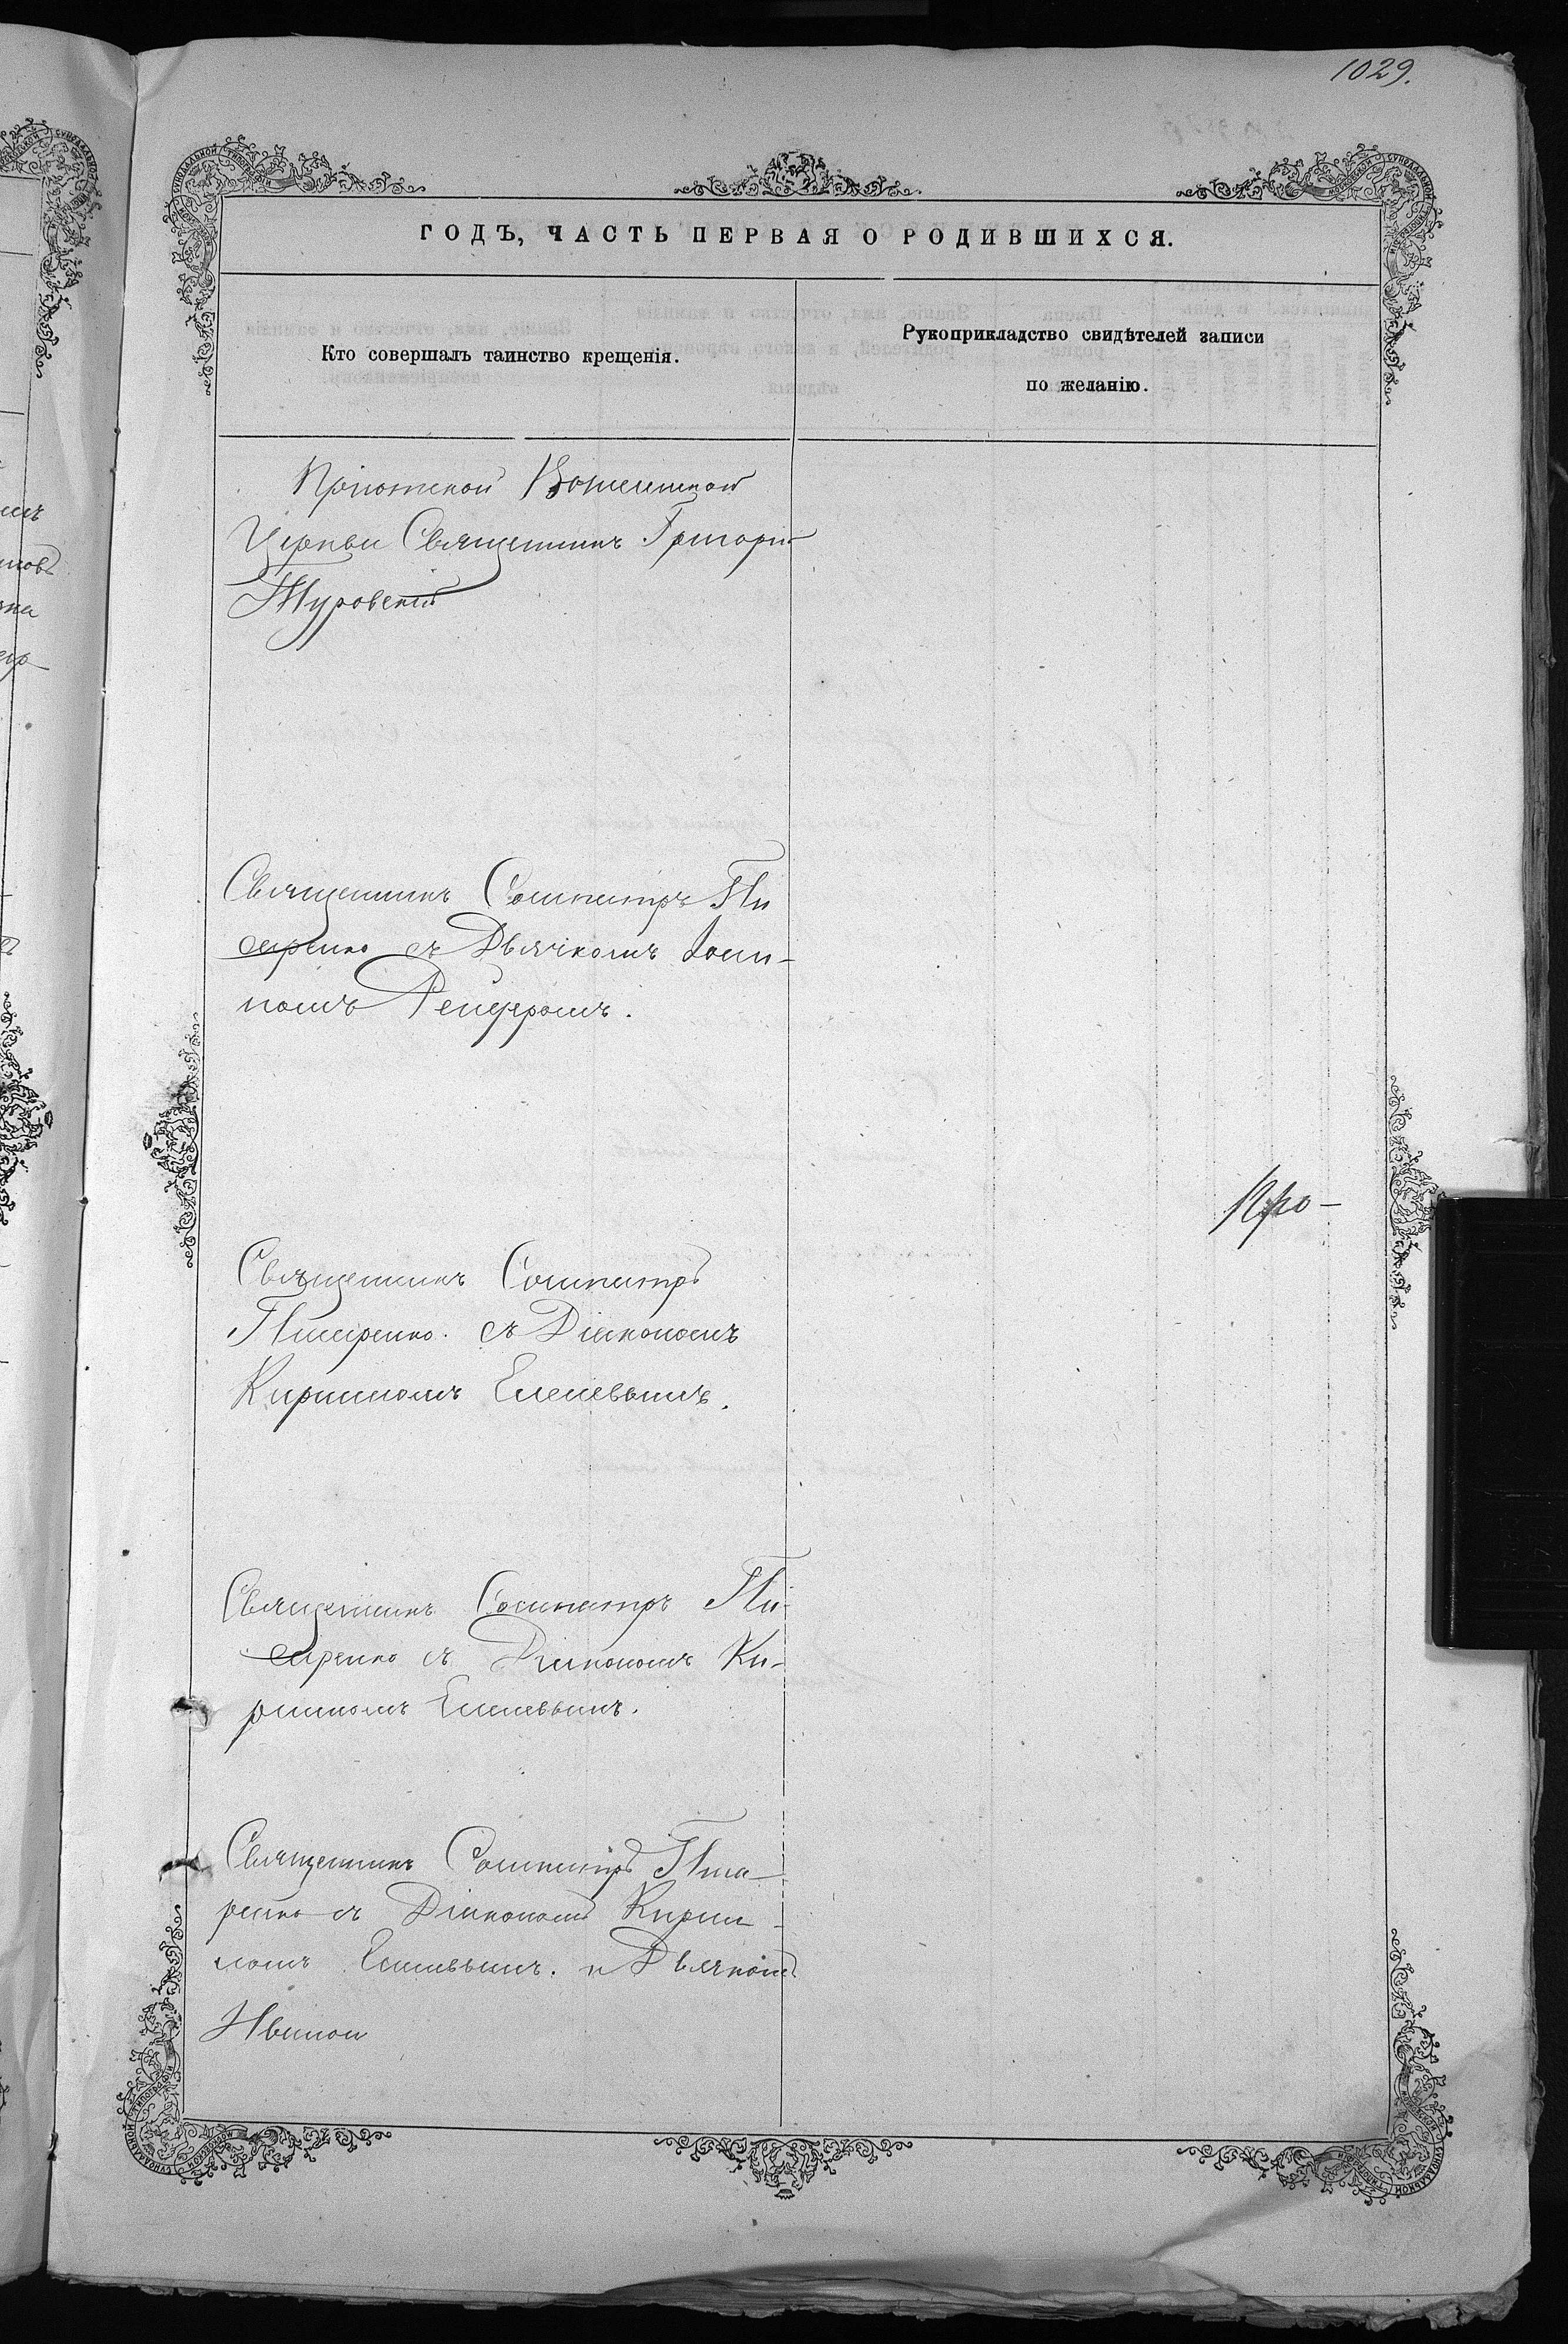 1029.
ГОДЪ, ЧАСТЬ ПЕРВАЯ О РОДИВШИХСЯ.
Кто совершалъ таинство крещенія.
Рукоприкладство свидѣтелей записи
по желанію.
Пріютской
Церкви Священникъ Григорій
Туровскій
Священникъ Сосипатръ Пи
саренко съ Дьячкомъ Іоси-
помъ
Священникъ Сосипатръ
Писаренко. съ Діакономъ
Кириломъ Елесевымъ.
Про-
Священникъ Сосипатръ Пи-
саренко съ Діакономъ Ки-
риломъ Елесевымъ.
Священникъ Сосипатръ Писа
ренко съ Діакономъ Кири-
ломъ Елесевымъ. и